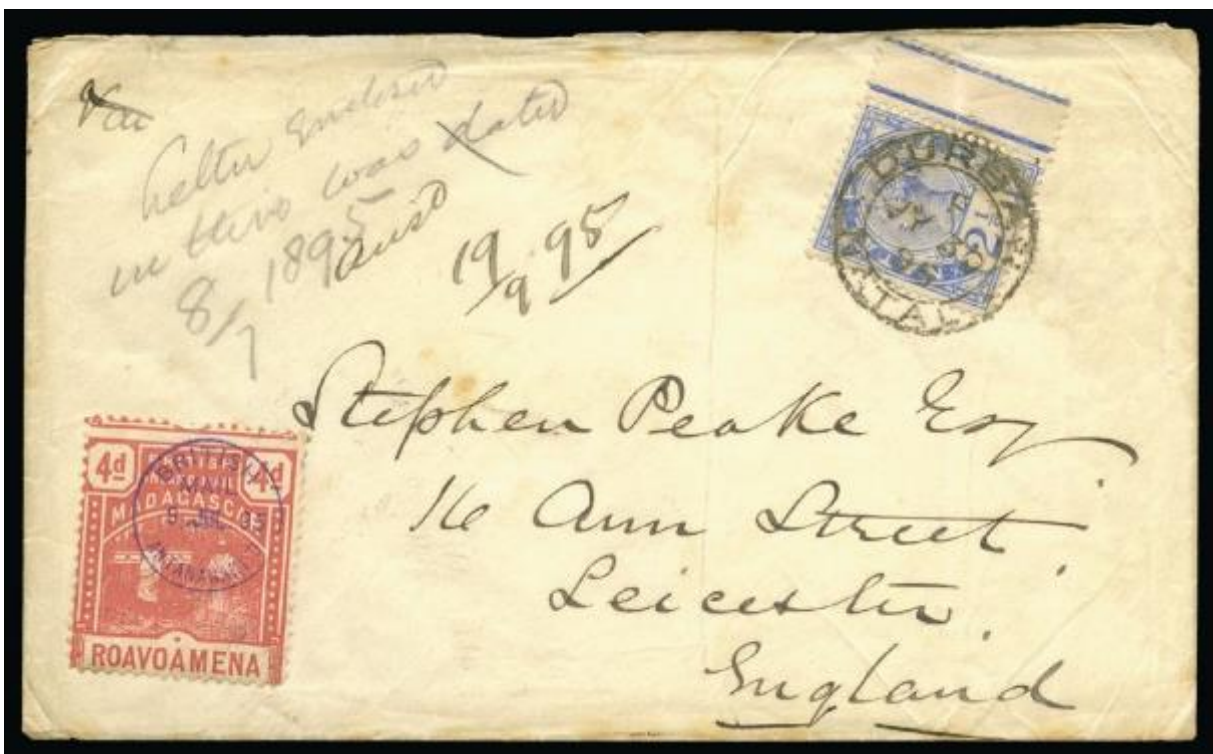 Via
Letter Enclosed
in this was dated
8/7 1895
19/9 95
DURBAN
NATAL
2½
Stephen Peake Esq
16 Ann Street,
Leicester,
England
4d 4d
BRITISH
MAIL
MADAGASCAR
JUL 95
ANTANANARIVO
ROAVOAMENA